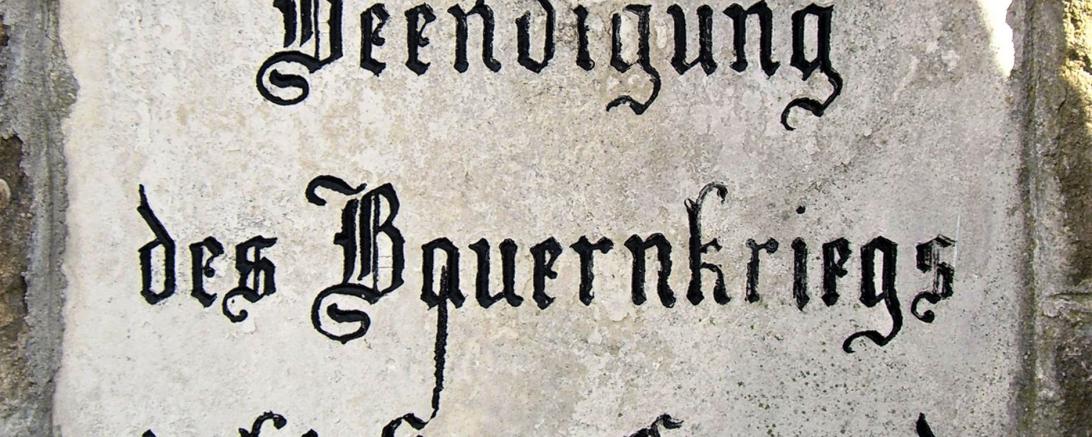 Beendigung
des Bauernkriegs